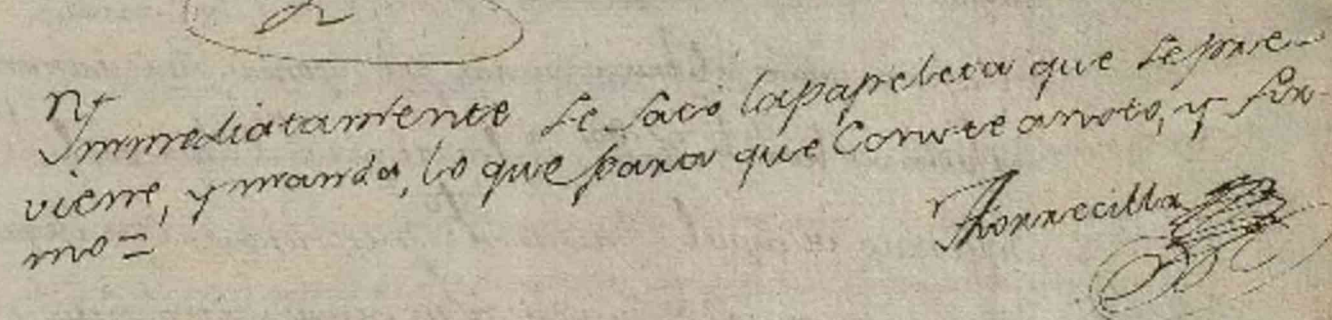 Immediatamente se sacó la papeleta que se pre-
viene, y manda, lo que para que Conste anoto, y fir-
mo=
Thorrecilla